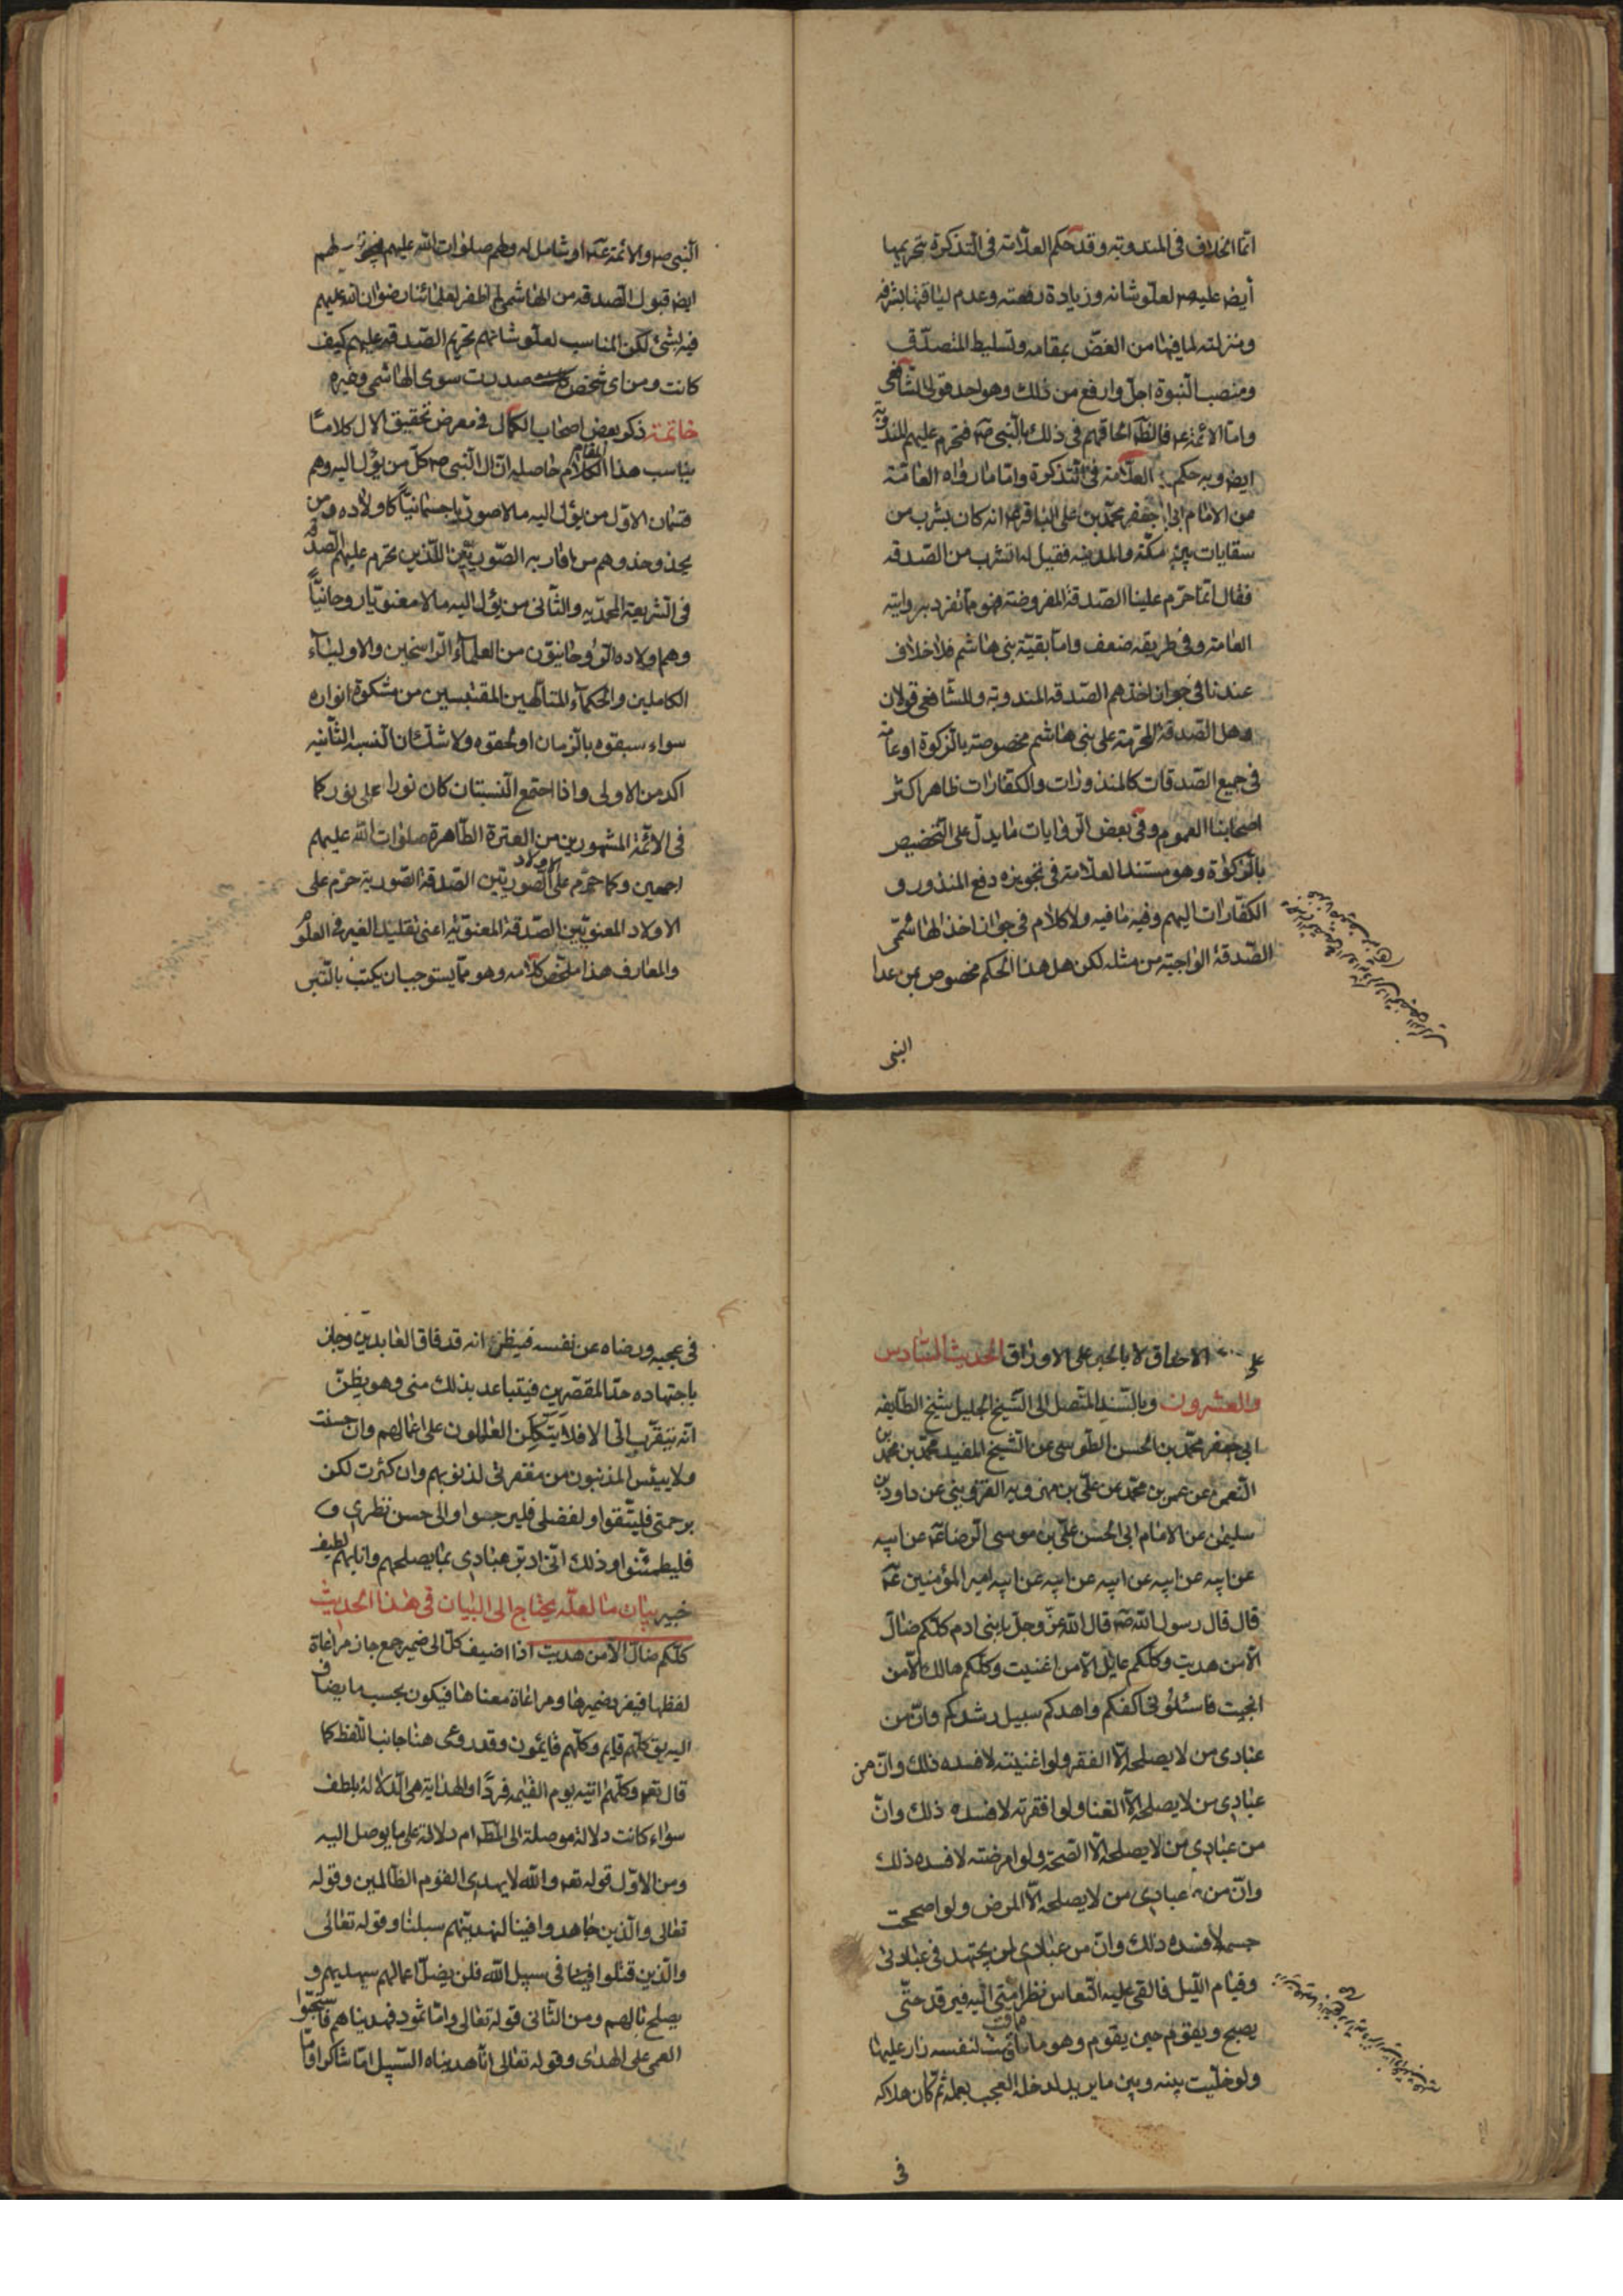 انما الخلاف فى المندوبة وقد حكم العلامة فى التذكرة بتحريمها
أيض عليه ص لعلو شانه وزيادة رفعته وعدم لياقتها بشرفه
ومنزلته لما فيها من الغض بمقامه وتسليط المتصدق
ومنصب النبوة اجل وارفع من ذلك وهو احد قولى الشافعى
واما الائمة ع فالظ الحاقهم فى ذلك بالنبى ص فتحرم عليهم المندوبة
ايض وبه حكم العلامة فى التذكرة واما ما رواه العامة
من الامام ابى جعفر محمد بن على الباقر ع انه كان يشرب من
سقايات بين مكة والمدينه فقيل له اتشرب من الصدقه
فقال انما حرم علينا الصدقة المفروضة فهو مما تفرد بروايته
العامة وفى طريقه ضعف واما بقية بنى هاشم فلا خلاف
عندنا فى جواز اخذهم الصدقه المندوبة وللشافعى قولان
وهل الصدقة المحرمة على بنى هاشم مخصوصة بالزكوة او عامة
فى جميع الصدقات كالمنذورات والكفارات ظاهر اكثر
اصحابنا العموم وفى بعض الروايات ما يدل على التخصيص
بالزكوة وهو مستند العلامة فى تجويزه دفع المنذور و
الكفارات اليهم وفيه ما فيه ولا كلام فى جواز اخذ الهاشمى
الصدقة الواجبة من مثله لكن هل هذا الحكم مخصوص بمن عدا
النبى
النبى ص والائمة ع او شامل له ولهم صلوات الله عليهم
ايض قبول الصدقه من الهاشمى لم اظفر لعلمائنا رضوان الله عليهم
فيه بشئ لكن المناسب لعلو شانهم تحريم الصدقة عليهم كيف
كانت ومن اى شخص صدرت سوى الهاشمى وغيره
خاتمة ذكر بعض اصحاب الكمال فى معرض تحقيق الال كلاما
يناسب هذا المقام حاصله ان ال النبى ص كل من يؤل اليه وهم
قسمان الاول من يؤل اليه مالا صوريا جسمانيا كاولاده ومن
يحذو حذوهم من اقاربه الصوريين الذين يحرم عليهم الصدقة
فى الشريعة المحمديه والثانى من يؤل اليه مالا معنويا روحانيا
وهم اولاده الروحانيون من العلماء الراسخين والاولياء
الكاملين والحكماء المتالهين المقتبسين من مشكوة انواره
سواء سبقوه بالزمان او لحقوه ولا شك ان النسبة الثانيه
اكد من الاولى واذا اجتمع النسبتان كان نورا على نور كما
فى الائمة المشهورين من العترة الطاهرة صلوات الله عليهم
اجمعين وكما حرم على الاولاد الصوريين الصدقة الصورية حرم على
الاولاد المعنويين الصدقة المعنوية اعنى تقليد الغير فى العلوم
والمعارف هذا ملخص كلامه وهو مما يستوجب ان يكتب بالتبر
على الاحداق لا بالحبر على الاوراق الحديث السادس
والعشرون وبالسند المتصل الى الشيخ الجليل شيخ الطايفه
ابى جعفر محمد بن الحسن الطوسى عن الشيخ المفيد محمد بن محمد بن
النعمن عن عمر بن محمد عن على بن مهرويه القزوينى عن داود بن
سليمن عن الامام ابى الحسن على بن موسى الرضا ع عن ابيه
عن ابيه عن ابيه عن ابيه عن ابيه عن ابيه امير المؤمنين ع
قال قال رسول الله ص قال الله عز وجل يا بنى ادم كلكم ضال
الا من هديت وكلكم عائل الا من اغنيت وكلكم هالك الا من
انجيت فاسئلونى اكفكم واهدكم سبيل رشدكم وان من
عبادى من لا يصلحه الا الفقر ولو اغنيته لافسده ذلك وان من
عبادى من لا يصلحه الا الغنا ولو افقرته لافسده ذلك وان
من عبادى من لا يصلحه الا الصحة ولو امرضته لافسده ذلك
وان من عبادى من لا يصلحه الا المرض ولو اصححت
جسمه لافسده ذلك وان من عبادى لمن يجتهد فى عبادتى
وقيام الليل فالقى عليه النعاس نظرا منى اليه فيرقد حتى
يصبح ويقوم حين يقوم وهو ماقت لنفسه زار عليها
ولو خليت بينه وبين ما يريد لدخله العجب بعمله ثم كان هلاكه
فى
فى عجبه ورضاه عن نفسه فيظن انه قد فاق العابدين وجاز
باجتهاده حد المقصرين فيتباعد بذلك منى وهو يظن
انه يتقرب الى الا فلا يتكلن العاملون على اعمالهم وان حسنت
ولا ييئس المذنبون من مغفرتى لذنوبهم وان كثرت لكن
برحمتى فليثقوا ولفضلى فليرجوا والى حسن نظرى
فليطمئنوا وذلك انى ادبر عبادى بما يصلحهم وانا بهم لطيف
خبير بيان ما لعله يحتاج الى البيان فى هذا الحديث
كلكم ضال الا من هديت اذا اضيف كل الى ضمير جمع جاز مراعاة
لفظها فيفرد ضميرها ومراعاة معناها فيكون بحسب ما يضاف
اليه يق كلهم قايم وكلهم قايمون وقد روعى هنا جانب اللفظ كما
قال تعه وكلهم اتيه يوم القيمه فردا والهداية هى الدلالة بلطف
سواء كانت دلالة موصلة الى المط ام دلالة على ما يوصل اليه
ومن الاول قوله تعه والله لا يهدى القوم الظالمين وقوله
تعالى والذين جاهدوا فينا لنهدينهم سبلنا وقوله تعالى
والذين قتلوا فى سبيل الله فلن يضل اعمالهم سيهديهم و
يصلح بالهم ومن الثانى قوله تعالى واما ثمود فهديناهم فاستحبوا
العمى على الهدى وقوله تعالى انا هديناه السبيل اما شاكرا واما